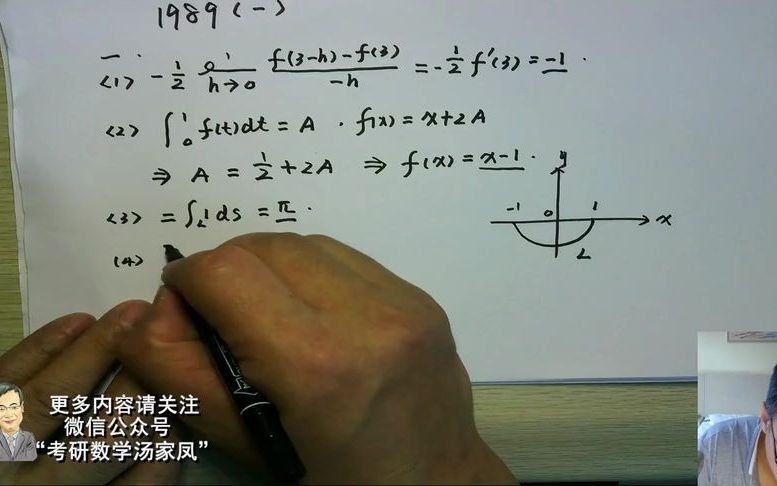 1989 (一)
一.
<1> -1/2 lim h→0 (f(3-h)-f(3))/(-h) = -1/2 f'(3) = -1.
<2> ∫₀¹ f(t)dt = A. f(x) = x+2A
⇒ A = 1/2+2A ⇒ f(x) = x-1.
<3> = ∫_L 1 ds = π.
(4>
y
-1 0 1 x
L
更多内容请关注
微信公众号
“考研数学汤家凤”